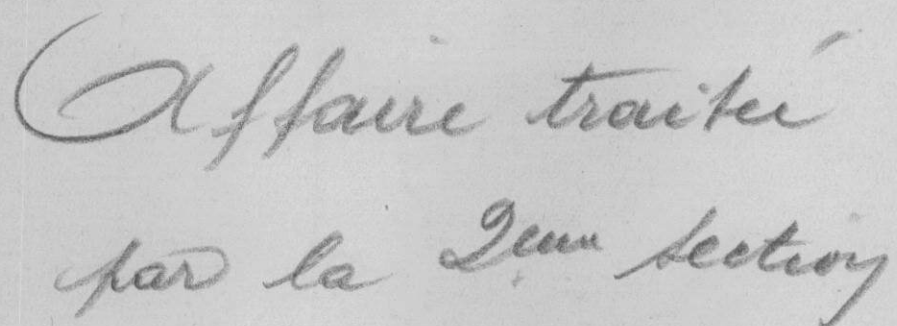 Affaire traitée
par la 2eme section